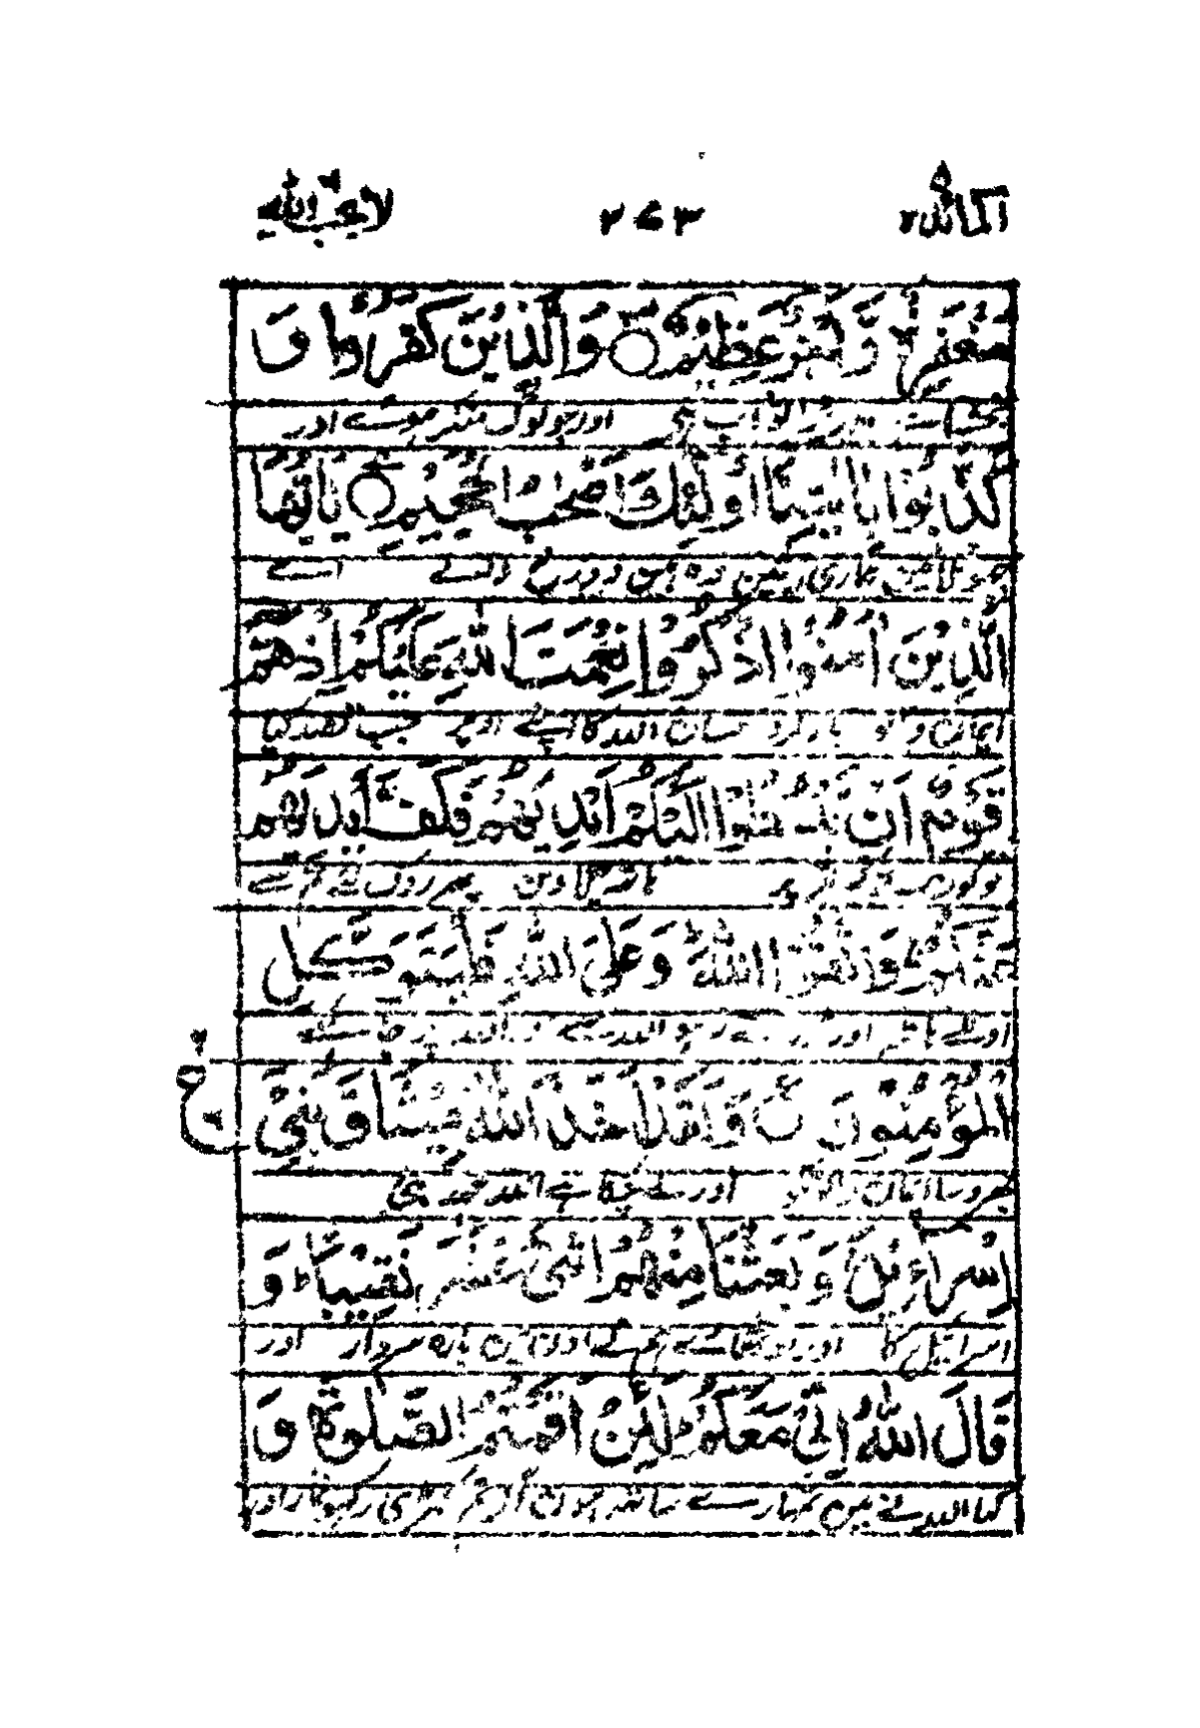 المائدة ٥ ٢٧٣ لا يحب الله
مَّغْفِرَةٌ وَّ أَجْرٌ عَظِيْمٌ ○ وَالَّذِيْنَ كَفَرُوْا وَ
اور جو لوگ منکر ہوئے اور
كَذَّبُوْا بِاٰيٰتِنَا اُولٰٓئِكَ اَصْحٰبُ الْجَحِيْمِ ○ يٰٓاَيُّهَا
جھٹلائیں ہماری آیتیں وہ ہیں دوزخ والے اے
الَّذِيْنَ اٰمَنُوا اذْكُرُوْا نِعْمَتَ اللّٰهِ عَلَيْكُمْ اِذْ هَمَّ
ایمان والو یاد کرو احسان اللہ کا اپنے اوپر جب قصد کیا
قَوْمٌ اَنْ يَّبْسُطُوْٓا اِلَيْكُمْ اَيْدِيَهُمْ فَكَفَّ اَيْدِيَهُمْ
لوگوں نے کہ تم پر ہاتھ چلاویں پھر روک لئے تم سے
عَنْكُمْ وَاتَّقُوا اللّٰهَ وَعَلَى اللّٰهِ فَلْيَتَوَكَّلِ
اونکے ہاتھ اور ڈرتے رہو اللہ سے اور اللہ پر چاہئے
الْمُؤْمِنُوْنَ ○ وَلَقَدْ اَخَذَ اللّٰهُ مِيْثَاقَ بَنِيْٓ
بھروسا ایمان والوں کو اور لے چکا ہے اللہ عہد بنی
اِسْرَآءِيْلَ وَبَعَثْنَا مِنْهُمُ اثْنَيْ عَشَرَ نَقِيْبًا وَ
اسرائیل کا اور اوٹھائے ہمنے اون میں بارہ سردار اور
قَالَ اللّٰهُ اِنِّيْ مَعَكُمْ لَئِنْ اَقَمْتُمُ الصَّلٰوةَ وَ
کہا اللہ نے میں تمہارے ساتھ ہوں اگر تم کھڑی رکھو نماز اور